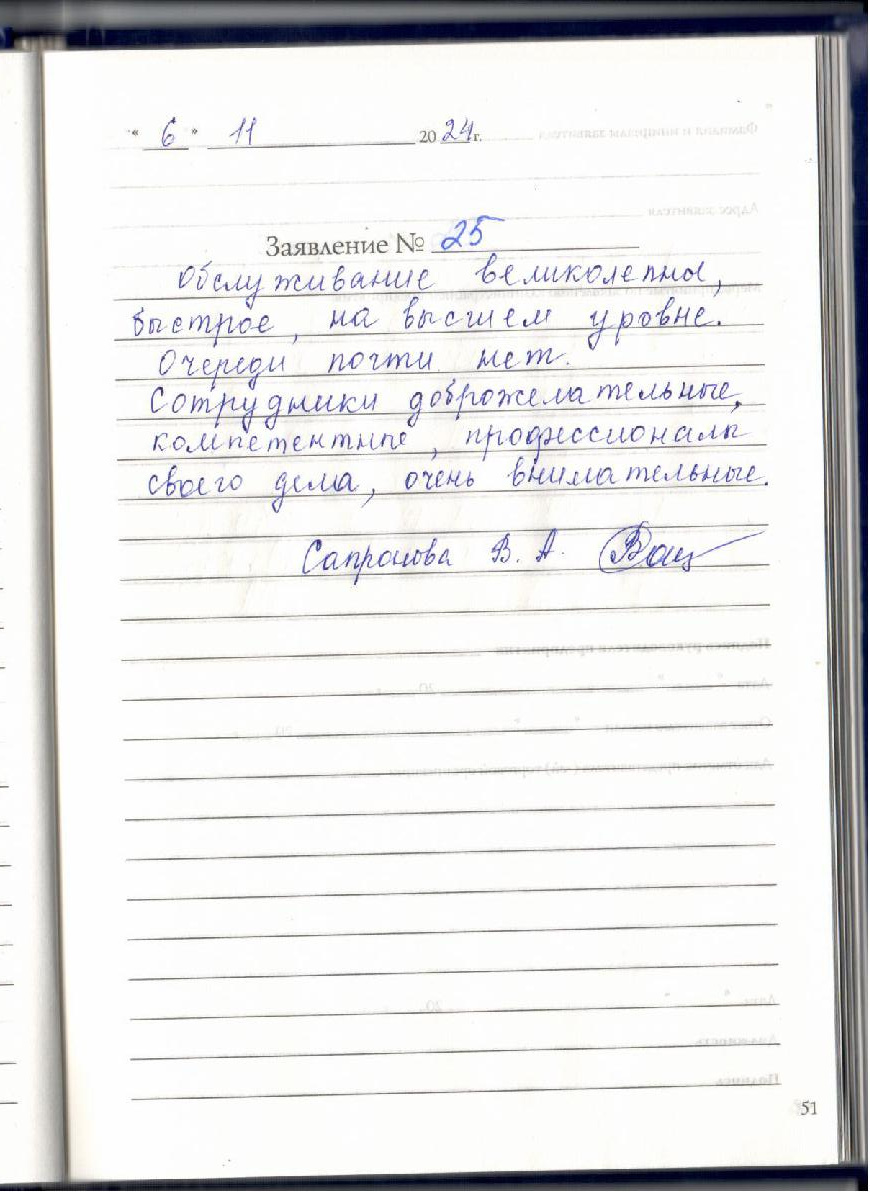 " 6 " 11 2024г.
Заявление № 25
Обслуживание великолепно,
быстрое, на высшем уровне.
Очереди почти нет.
Сотрудники доброжелательные,
компетентные, профессионалы
своего дела, очень внимательные.
Сапронова В. А.
51